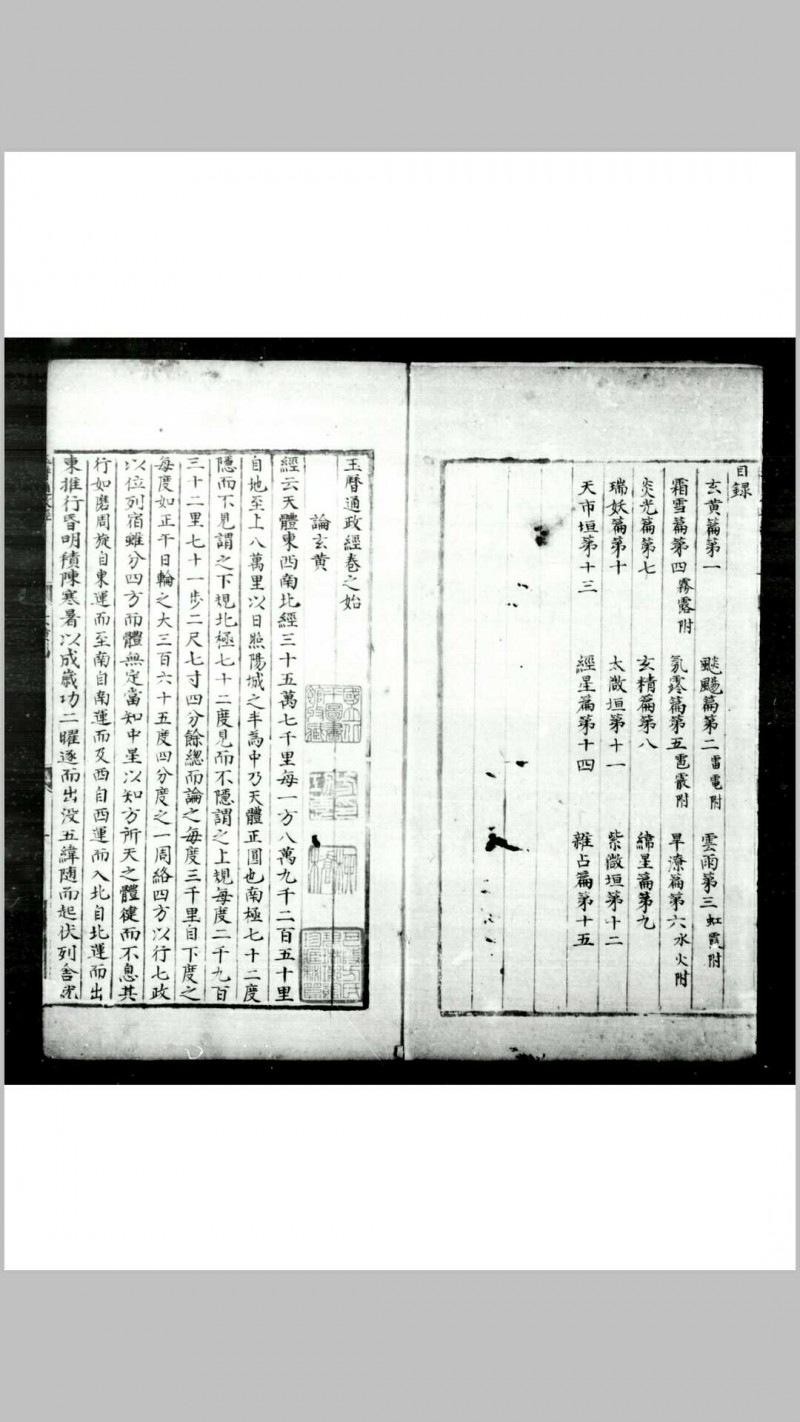 目録
玄黄篇第一　颷颺篇第二雷電附　雲雨第三虹霓附
霜雪篇第四霧露附　氛霧篇第五雹霰附　旱潦篇第六水火附
炎光篇第七　玄精篇第八　緯星篇第九
瑞妖篇第十　太微垣第十一　紫微垣第十二
天市垣第十三　經星篇第十四　雜占篇第十五
玉曆通政經卷之始
論玄黄
經云天體東西南北經三十五萬七千里每一方八萬九千二百五十里
自地至上八萬里以日照陽城之半為中乃天體正圓也南極七十二度
隱而不見謂之下規北極七十二度見而不隱謂之上規每度二千九百
三十二里七十一步二尺七寸四分餘總而論之每度三千里自下度之
每度如正午日輪之大三百六十五度四分度之一周絡四方以行七政
以位列宿雖分四方而體無定當知中星以知方所天之體健而不息其
行如磨周旋自東運而至南自南運而及西自西運而入北自北運而出
東推行昏明積陳寒暑以成歲功二曜遂而出没五緯随而起伏列舍